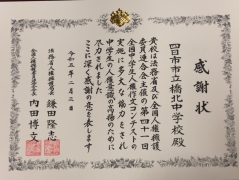 感謝状
四日市市立橋北中学校殿
貴校は法務省及び全国人権擁護
委員連合会主催の第四十一回
全国中学生人権作文コンテストの
実施に多大な協力をされ
中学生の人権意識の高揚のために
尽力されました
ここに深く感謝の意を表します
法務省人権擁護局長
鎌田隆志
全国人権擁護委員連合会長
内田博文